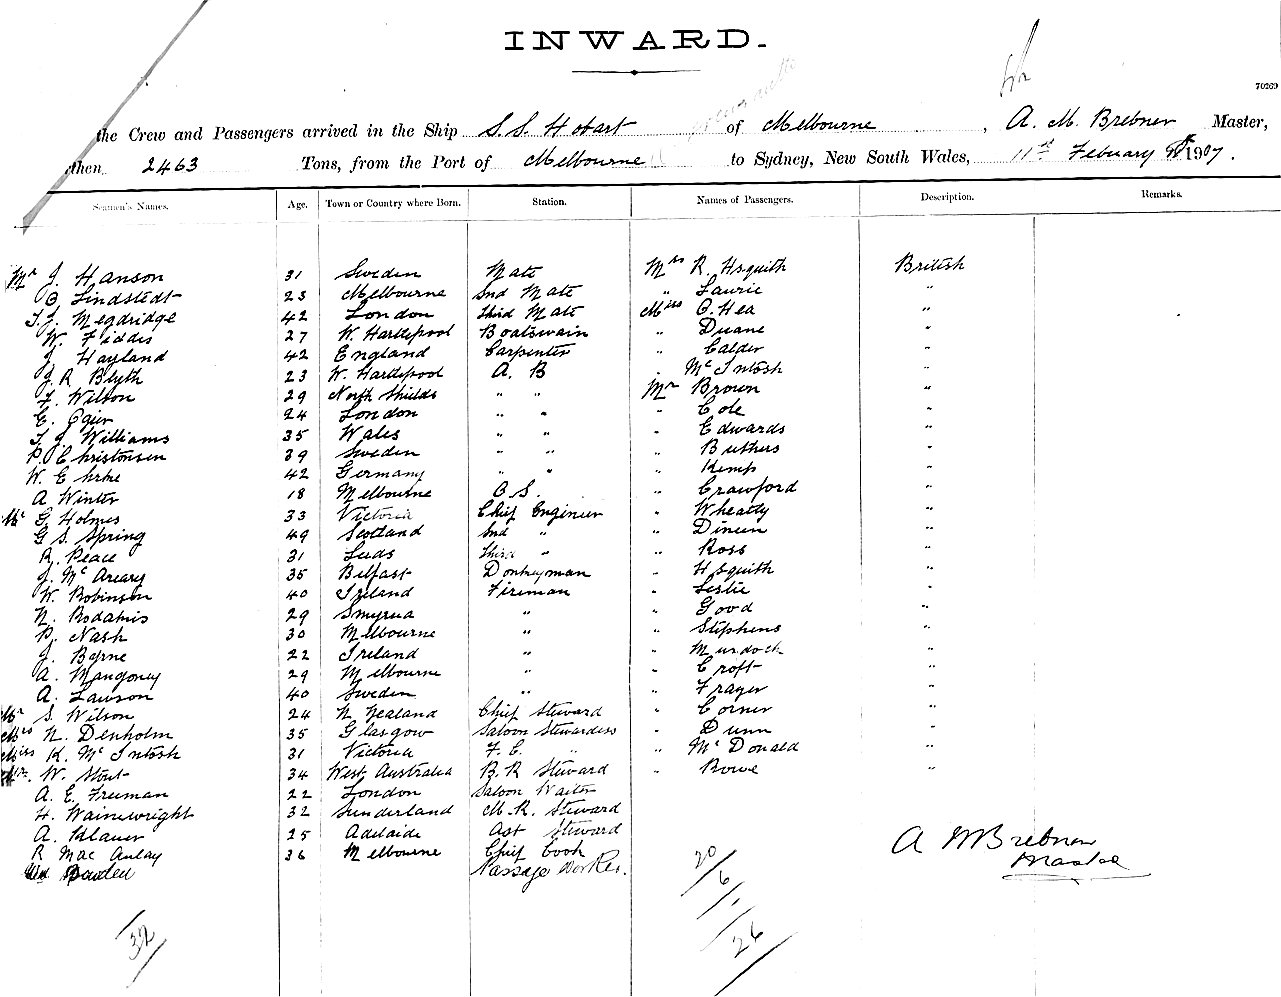 INWARD.
70269
the Crew and Passengers arrived in the Ship S. S. Hobart of Melbourne, A. M. Brebner Master,
then 2463 Tons, from the Port of Melbourne to Sydney, New South Wales, 11th February 1907.
Seamen's Names. Age. Town or Country where Born. Station. Names of Passengers. Description. Remarks.
Mr J. Hanson 31 Sweden Mate Mrs R. Hsquith British
O Lindstedt 23 Melbourne 2nd Mate " Laurie "
T. J. Megdridge 42 London third Mate Miss O. Hea "
W. Fiddis 27 W. Hartlepool Boatswain " Duane "
J. Hayland 42 England Carpenter " Calder "
J. R Blyth 23 W. Hartlepool A. B " McIntosh "
F. Wilson 29 North Shields " " Mr Brown "
E. Ogier 24 London " " " Cole "
T. J. Williams 35 Wales " " " Edwards "
P. Christonsen 39 Sweden " " " "
W. Ehrke 42 Germany " " " Kemp "
A Winter 18 Melbourne O. S. " Crawford "
Mr G. Holmes 33 Victoria Chief Engineer " Wheatly "
G S. Spring 49 Scotland 2nd " " Dineen "
R. Peace 31 Leeds third " " Ross "
J. McAreary 35 Belfast Donkeyman " Hsquith "
W. Robinson 40 Ireland Fireman " Leslie "
N. Rodakis 29 Smyrna " " Good "
P. Nash 30 Melbourne " " Stephens "
J. Byrne 22 Ireland " " Murdoch "
A. Mangoney 29 Melbourne " " Croft "
A. Lawson 40 Sweden " " Frayer "
Mr S. Wilson 24 N Zealand Chief Steward " Corner "
Mrs N. Denholm 35 Glasgow Saloon Stewardess " Dunn "
Miss K. McIntosh 31 Victoria F. C. " " McDonald "
Mr. W. Stout 34 West Australia B. R Steward " Rowe "
A. E. Freeman 22 London Saloon Waiter
H. Wainewright 32 Sunderland M. R. Steward
A. 25 Adelaide Ast Steward
R MacAulay 36 Melbourne Chief Cook
Passage Worker.
A M Brebner
Master
32
20/6/1/26